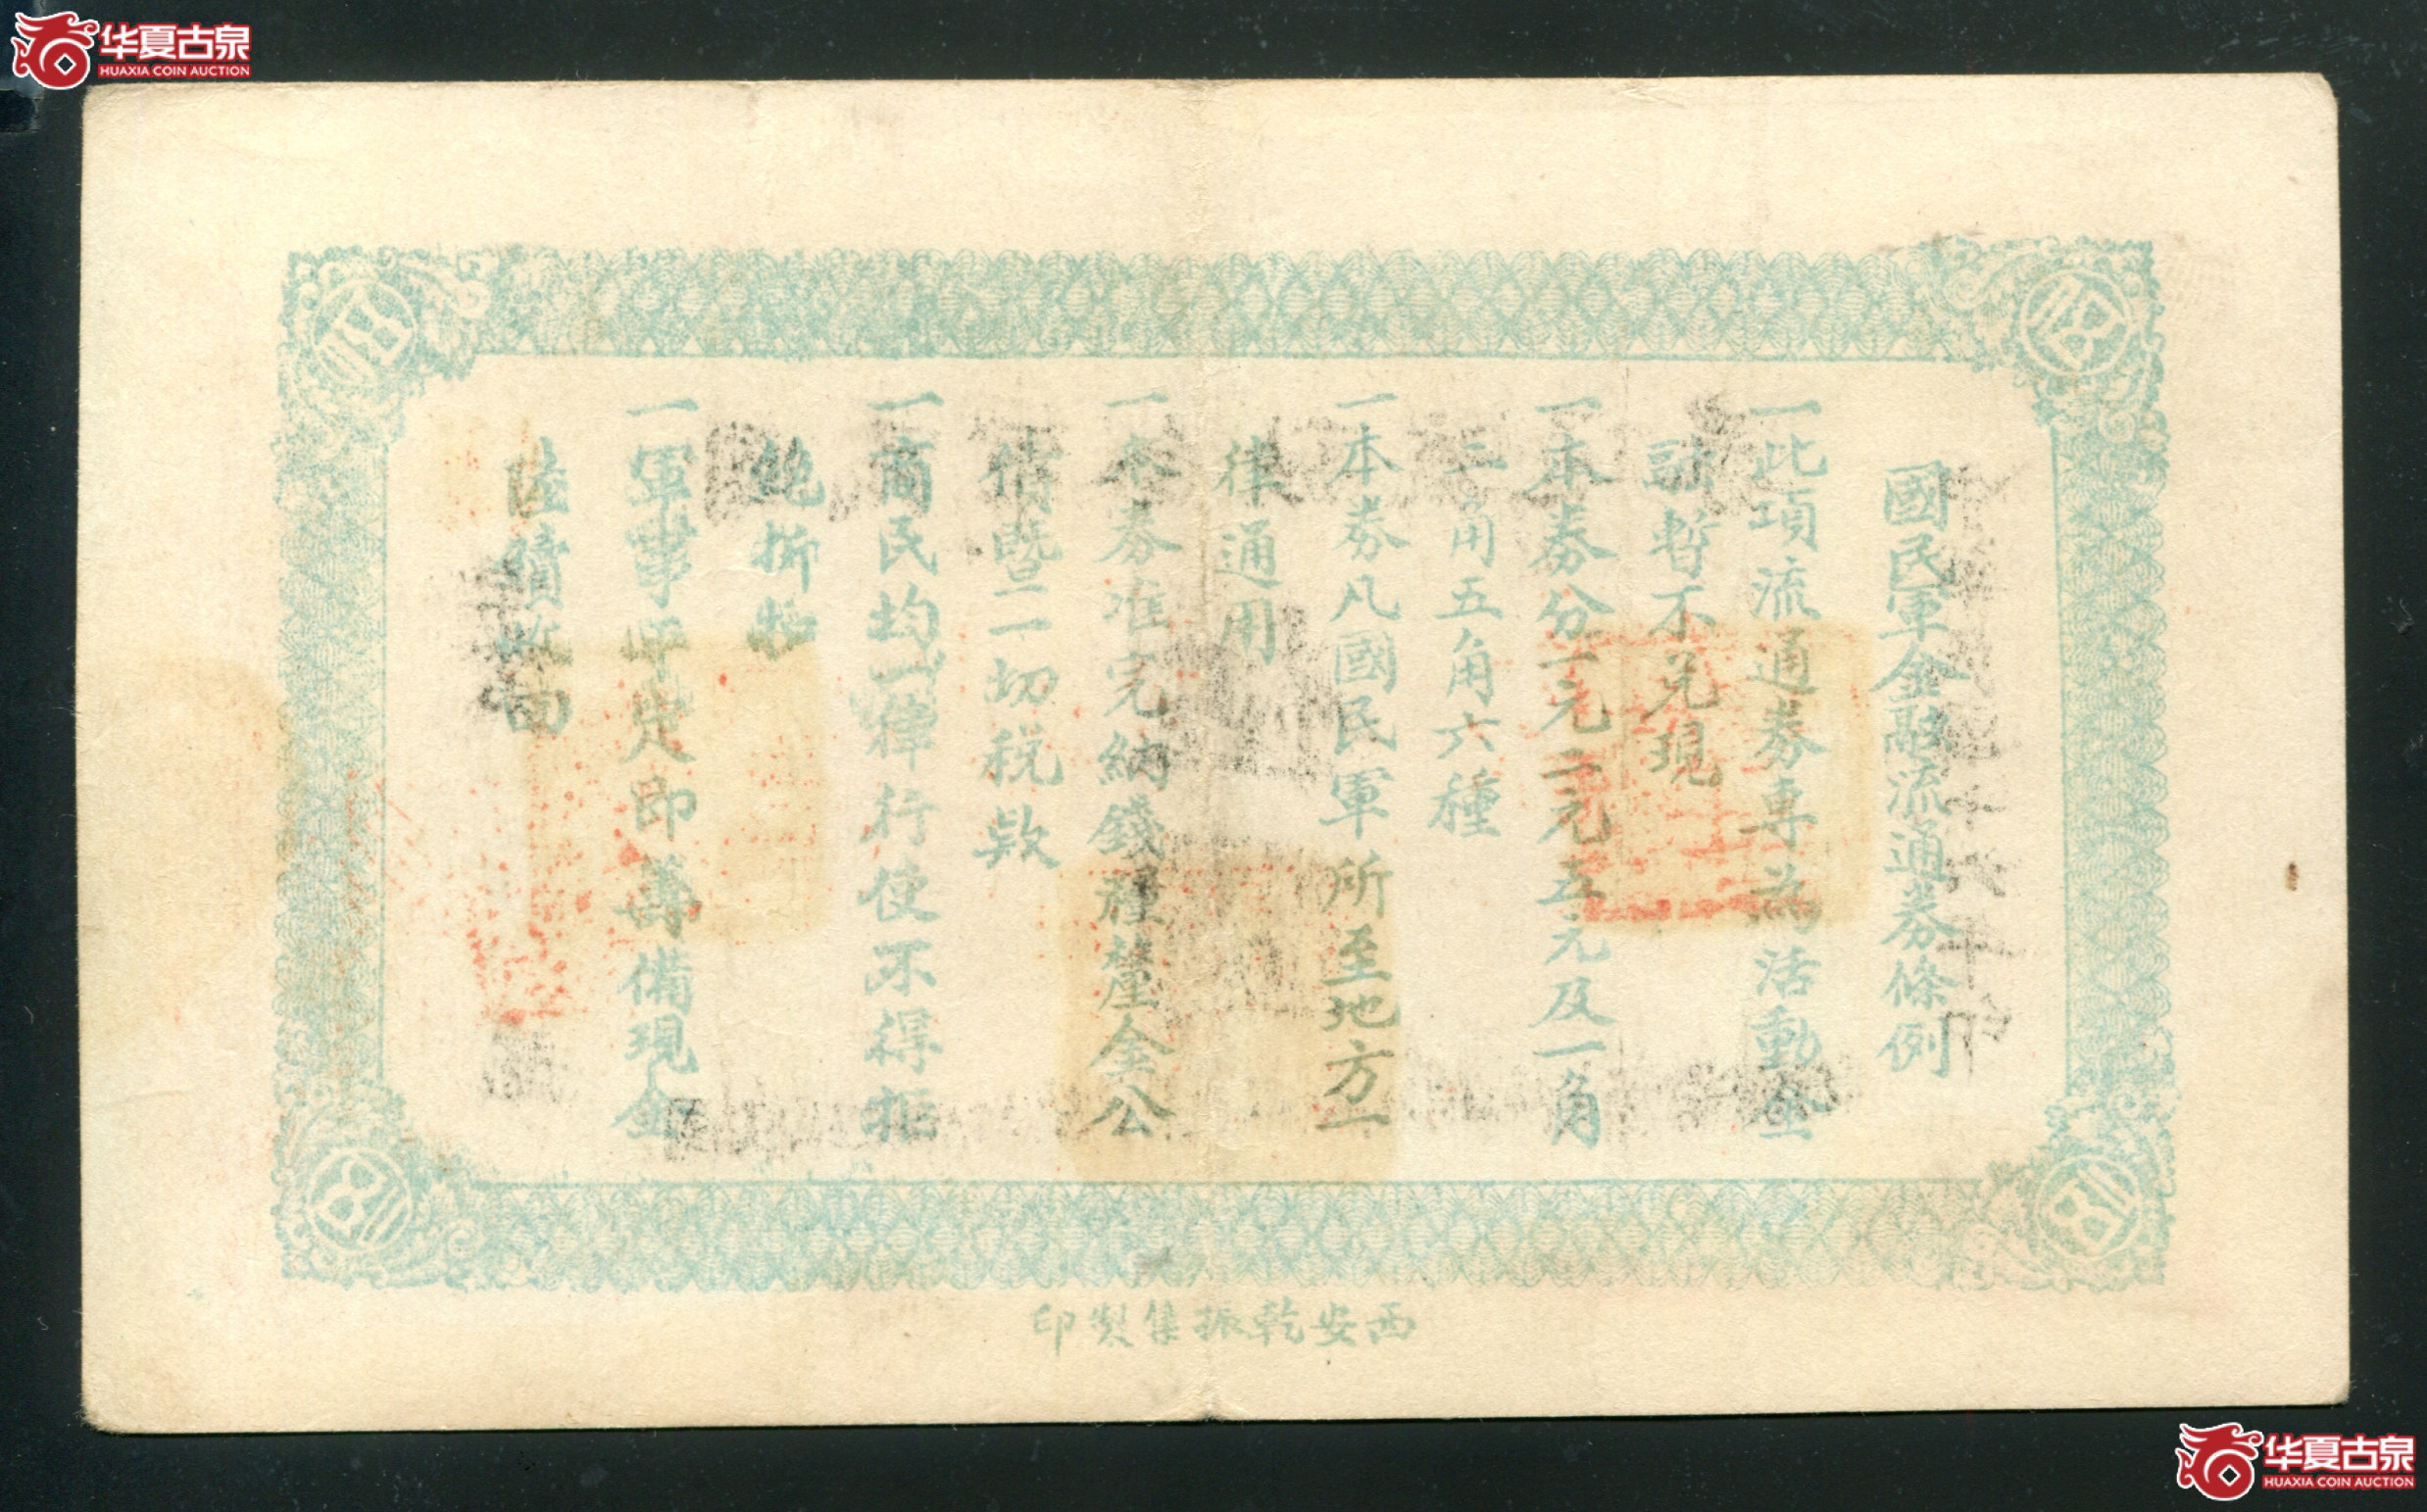 华夏古泉
HUAXIA COIN AUCTION
國民軍金融流通券條例
一此項流通券專為活動金
融暫不兌現
一本券分一元二元五元及一角
二角五角六種
一本券凡國民軍所至地方一
律通用
一本券准完納錢糧釐金公
債暨一切稅欵
一商民均一律行使不得拒
絕折扣
一軍事平定即籌備現金
陸續收回
西安乾振集製印
华夏古泉
HUAXIA COIN AUCTION